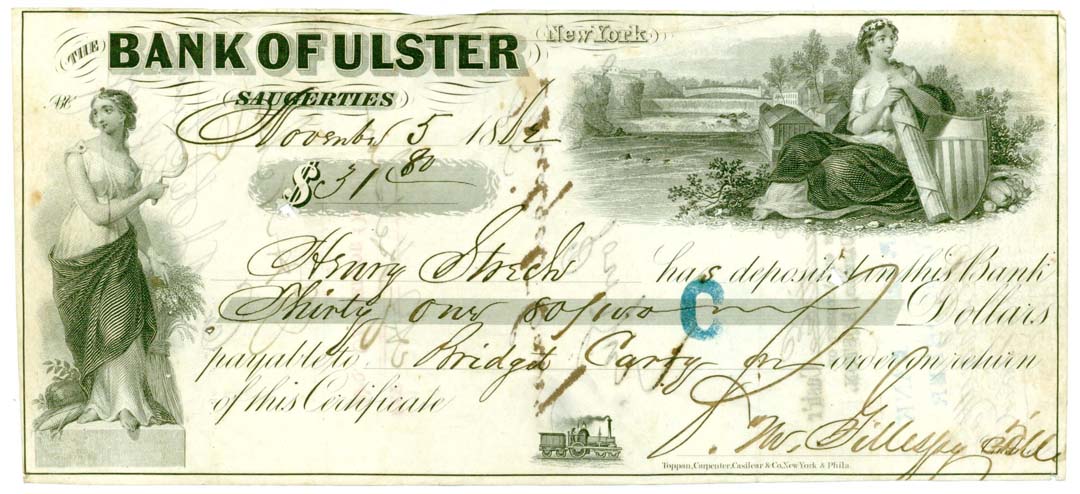 THE BANK OF ULSTER New York
SAUGERTIES
No.
November 5 1862
$ 31 80
Henry has deposited in this Bank
Thirty one 80/100 Dollars
C
payable to Bridget or order on return
of this Certificate
Gillespy
Toppan, Carpenter, Casilear & Co, New York & Phila.